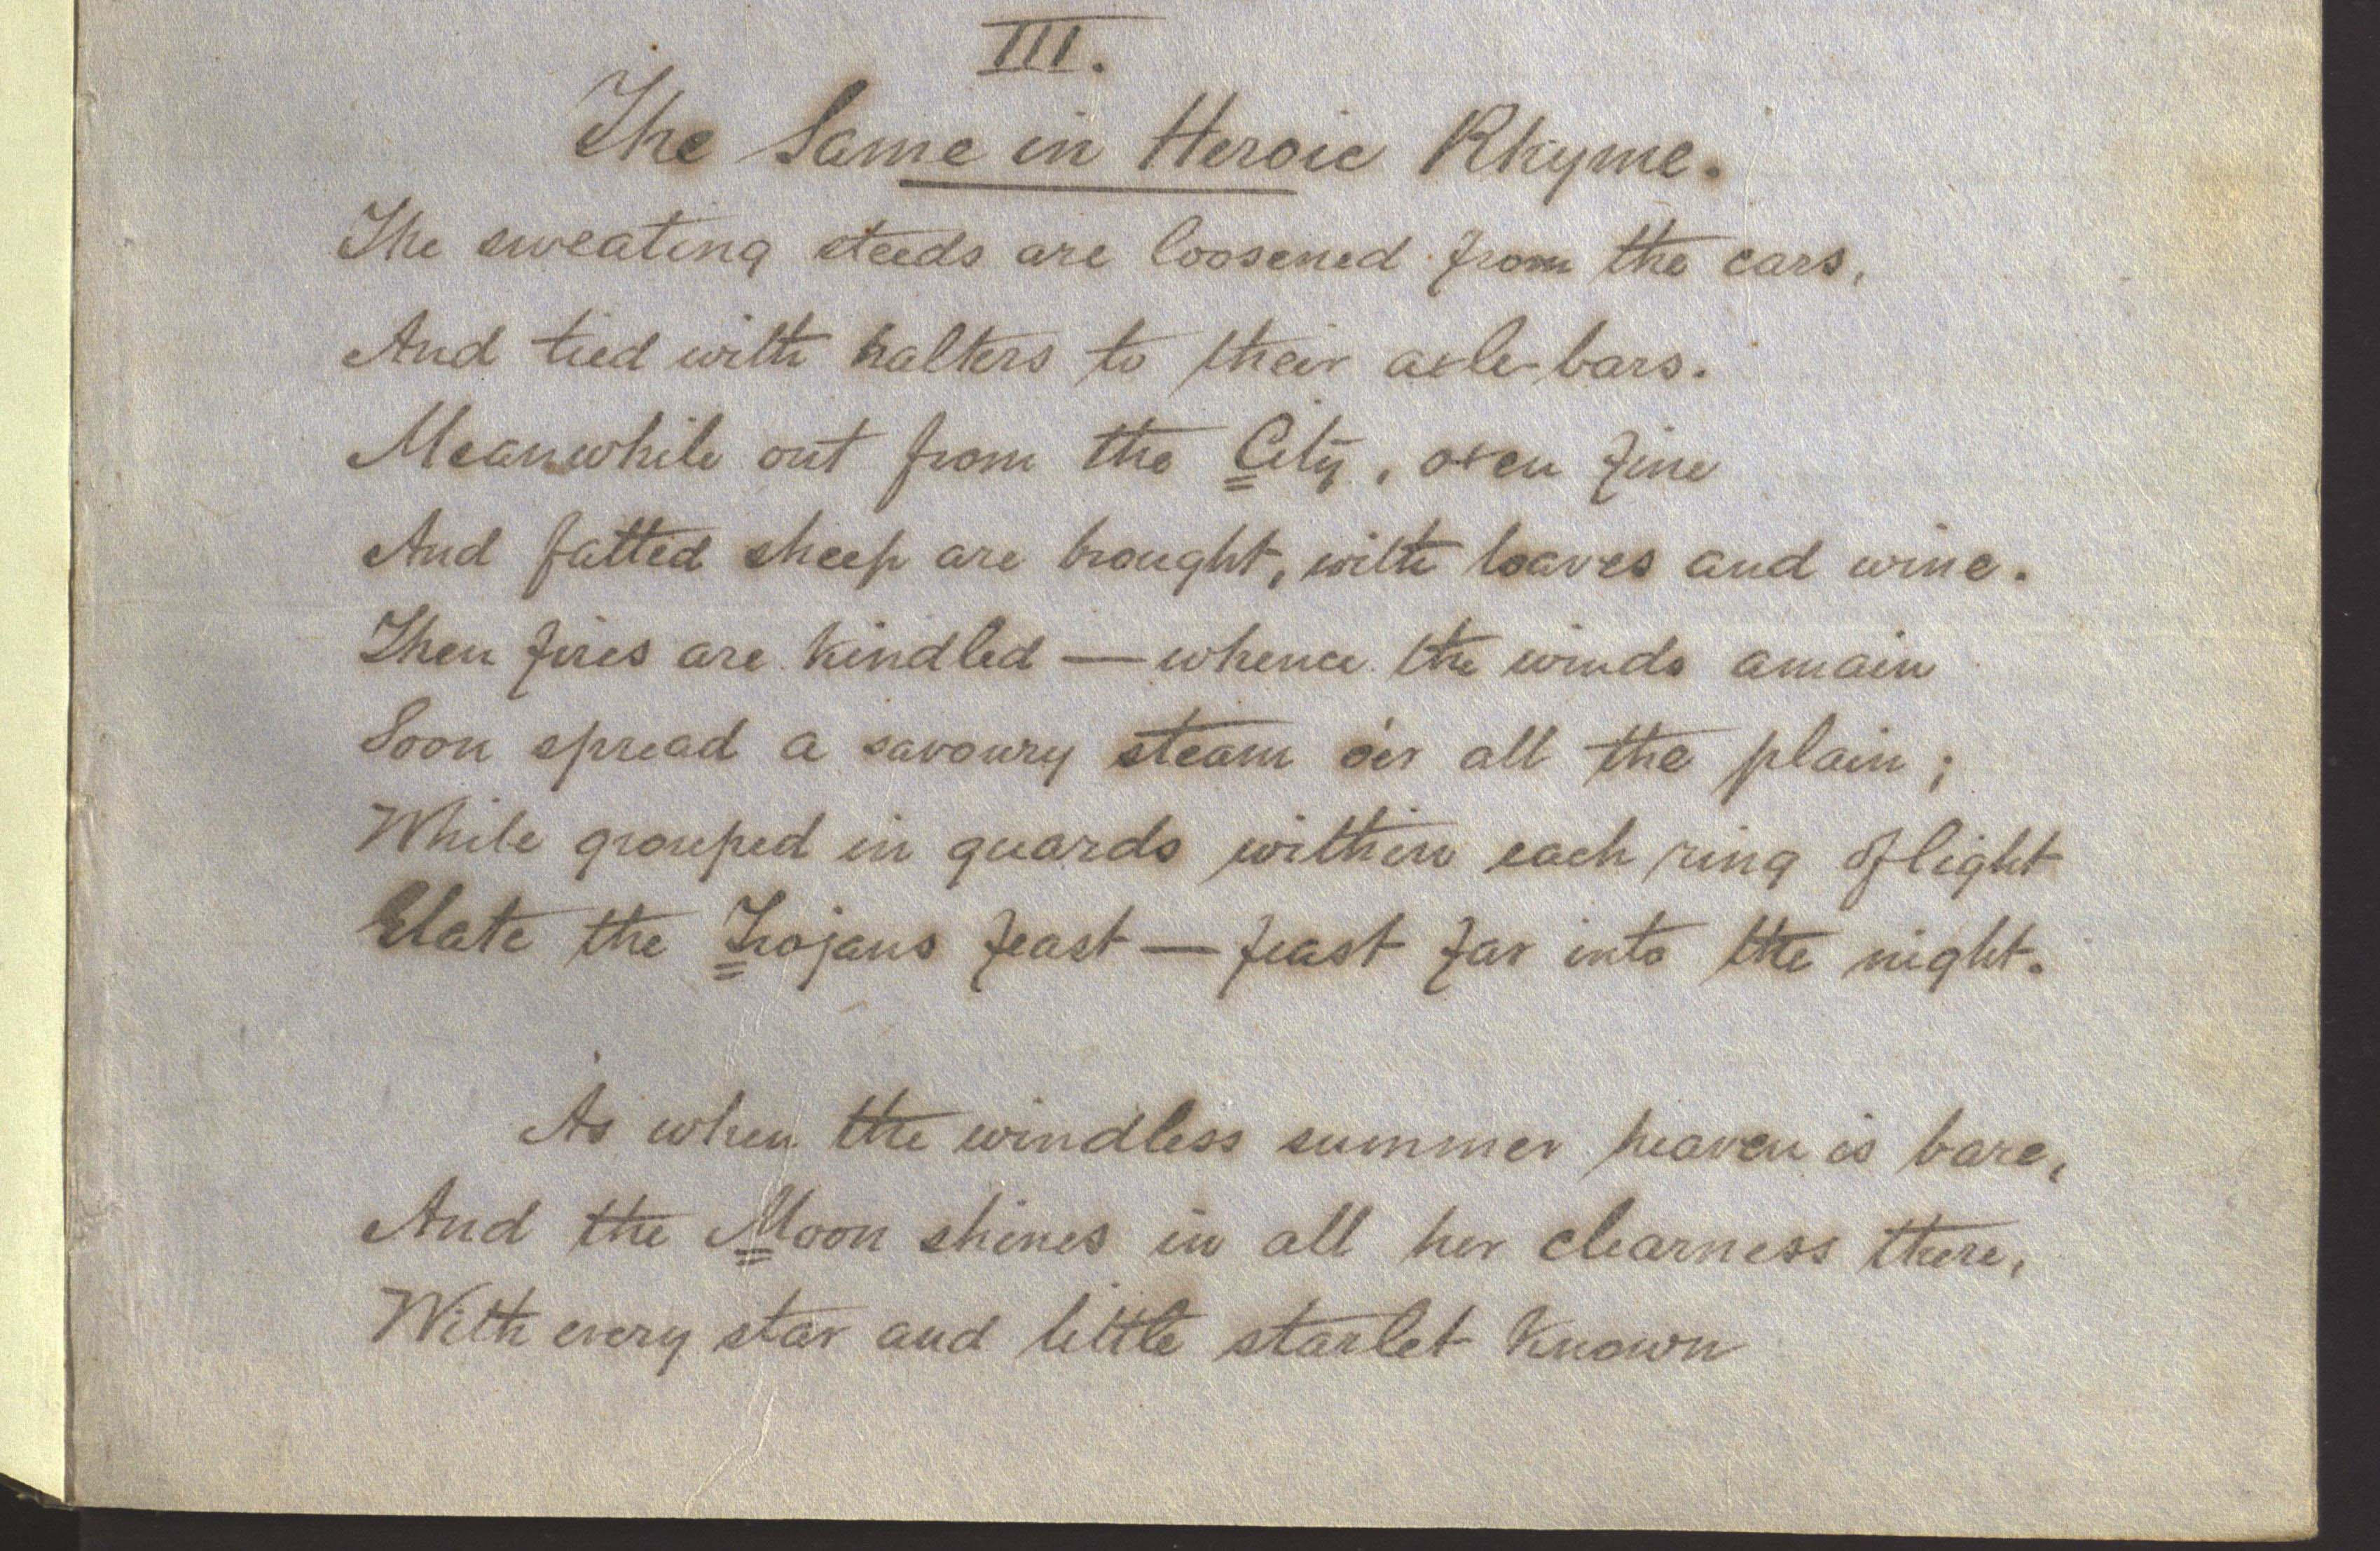 III.
The Same in Heroic Rhyme.
The sweating steeds are loosened from the cars,
And tied with halters to their axle-bars.
Meanwhile out from the City, oxen fine
And fatted sheep are brought, with loaves and wine.
Then fires are kindled — whence the winds amain
Soon spread a savoury steam o'er all the plain;
While grouped in guards within each ring of light
Elate the Trojans feast — feast far into the night.
As when the windless summer heaven is bare,
And the Moon shines in all her clearness there,
With every star and little starlet known